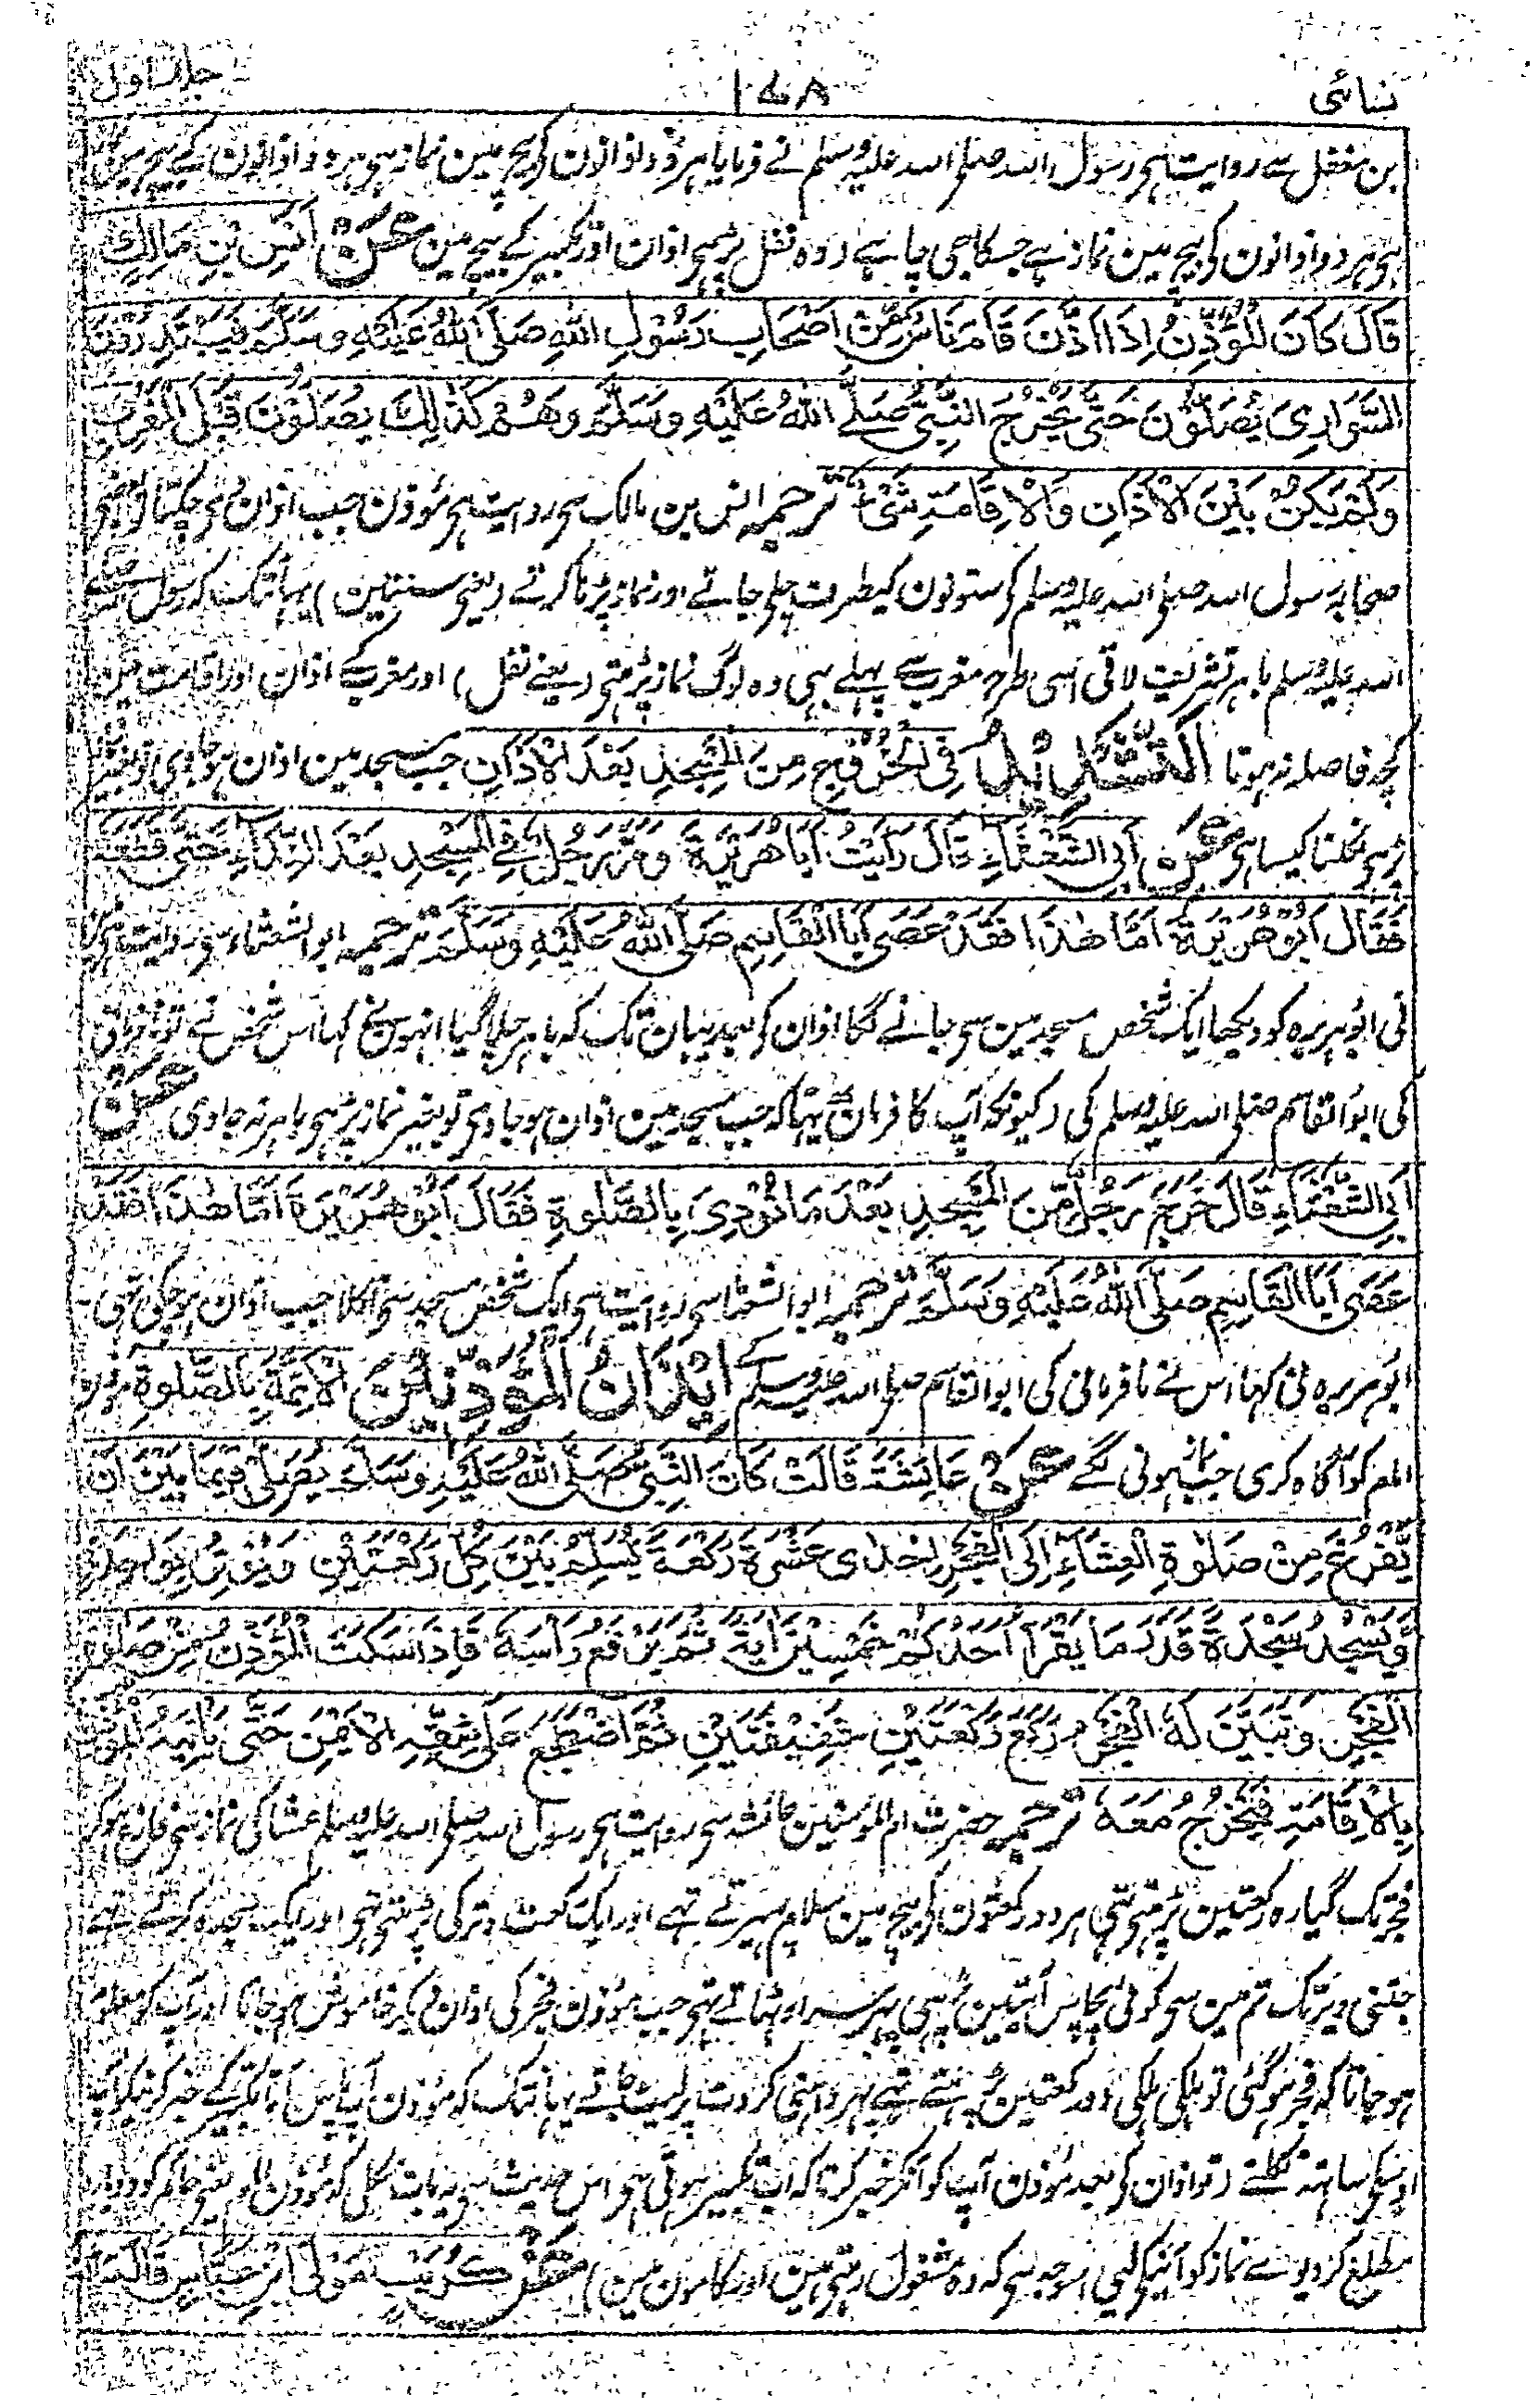 نسائی ۱۷۸ جلد اول
بن مغفل سے روایت ہی رسول اللہ صلی اللہ علیہ وسلم نے فرمایا ہر دو اذانون کی بیچ مین نماز ہی ہر دو اذانون کے بیچ مین نماز
ہی ہر دو اذانون کی بیچ مین نماز ہے جسکا جی چاہے (وہ نفل پڑہی اذان اور تکبیر کے بیچ مین عَنْ اَنَسِ بْنِ مَالِكٍ
قَالَ كَانَ الْمُؤَذِّنُ اِذَا اَذَّنَ قَامَ نَاسٌ مِّنْ اَصْحَابِ رَسُوْلِ اللّٰهِ صَلَّى اللّٰهُ عَلَيْهِ وَسَلَّمَ فَيَبْتَدِرُوْنَ
السَّوَارِيَ يُصَلُّوْنَ حَتّٰى يَخْرُجَ النَّبِيُّ صَلَّى اللّٰهُ عَلَيْهِ وَسَلَّمَ وَهُمْ كَذٰلِكَ يُصَلُّوْنَ قَبْلَ الْمَغْرِبِ
وَلَمْ يَكُنْ بَيْنَ الْاَذَانِ وَالْاِقَامَةِ شَيْءٌ ترجمہ انس بن مالک سی روایت ہی مؤذن جب اذان دی چکتا تو بعضی
صحابہ رسول اللہ صلی اللہ علیہ وسلم کی ستونون کیطرف چلی جاتے اور نماز پڑہا کرتے (یعنی سنتین) یہانتک کہ رسول اللہ صلی
اللہ علیہ وسلم باہر تشریف لاتی اسی طرح مغرب سے پہلے بہی وہ لوگ نماز پڑہتی (یعنے نفل) اور مغرب کے اذان اور اقامت مین
کچھ فاصلہ نہوتا اَلتَّشْدِيْدُ فِي الْخُرُوْجِ مِنَ الْمَسْجِدِ بَعْدَ الْاَذَانِ جب مسجد مین اذان ہو جاوی تو بغیر
پڑہی نکلنا کیسا ہی عَنْ اَبِي الشَّعْثَاءِ قَالَ رَاَيْتُ اَبَا هُرَيْرَةَ وَمَرَّ رَجُلٌ فِي الْمَسْجِدِ بَعْدَ النِّدَاءِ حَتّٰى قَطَعَهُ
فَقَالَ اَبُوْ هُرَيْرَةَ اَمَّا هٰذَا فَقَدْ عَصٰى اَبَا الْقَاسِمِ صَلَّى اللّٰهُ عَلَيْهِ وَسَلَّمَ ترجمہ ابو الشعثاء سی روایت ہی
نی ابو ہریرہ کو دیکھا ایک شخص مسجد مین سی جانے لگا اذان کی بعد یہان تک کہ باہر چلا گیا انہون نے کہا اس شخص نے تو نافرمانی
کی ابو القاسم صلی اللہ علیہ وسلم کی (کیونکہ آپ کا فرمان یہ تہا کہ جب مسجد مین اذان ہو جاوی تو بغیر نماز پڑہی باہر نہ جاوی عَنْ
اَبِي الشَّعْثَاءِ قَالَ خَرَجَ رَجُلٌ مِّنَ الْمَسْجِدِ بَعْدَ مَا نُوْدِيَ بِالصَّلٰوةِ فَقَالَ اَبُوْ هُرَيْرَةَ اَمَّا هٰذَا فَقَدْ
عَصٰى اَبَا الْقَاسِمِ صَلَّى اللّٰهُ عَلَيْهِ وَسَلَّمَ ترجمہ ابو الشعثا سی روایت ہی ایک شخص مسجد سی نکلا جب اذان ہو چکی تہی
ابو ہریرہ نی کہا اس نے نافرمانی کی ابو القاسم صلی اللہ علیہ وسلم کے اِيْذَانُ الْمُؤَذِّنِيْنَ الْاَئِمَّةَ بِالصَّلٰوةِ مؤذن
امام کو آگاہ کری جب نماز ہونی لگے عَنْ عَائِشَةَ قَالَتْ كَانَ النَّبِيُّ صَلَّى اللّٰهُ عَلَيْهِ وَسَلَّمَ يُصَلِّيْ فِيْمَا بَيْنَ اَنْ
يَّفْرُغَ مِنْ صَلٰوةِ الْعِشَاءِ اِلَى الْفَجْرِ اِحْدٰى عَشْرَةَ رَكْعَةً يُسَلِّمُ بَيْنَ كُلِّ رَكْعَتَيْنِ وَيُوْتِرُ بِوَاحِدَةٍ
وَّيَسْجُدُ سَجْدَةً قَدْرَ مَا يَقْرَاُ اَحَدُكُمْ خَمْسِيْنَ اٰيَةً ثُمَّ يَرْفَعُ رَاْسَهُ فَاِذَا سَكَتَ الْمُؤَذِّنُ مِنْ صَلٰوةِ
الْفَجْرِ وَتَبَيَّنَ لَهُ الْفَجْرُ رَكَعَ رَكْعَتَيْنِ خَفِيْفَتَيْنِ ثُمَّ اضْطَجَعَ عَلٰى شِقِّهِ الْاَيْمَنِ حَتّٰى يَاْتِيَهُ الْمُؤَذِّنُ
بِالْاِقَامَةِ فَيَخْرُجُ مَعَهُ ترجمہ حضرت ام المؤمنین عائشہ سی روایت ہی رسول اللہ صلی اللہ علیہ وسلم عشا کی نماز سی فارغ ہو کر
فجر تک گیارہ رکعتین پڑہتی تہی ہر دو رکعتون کی بیچ مین سلام پہیرتے تہے اور ایک رکعت وتر کی پڑہتی تہی اور ایک سجدہ کرتے تہے
جتنی دیر تک تم مین سی کوئی پچاس آیتین پڑہی پہر سر اوٹہاتے تہی جب مؤذن فجر کی اذان دیکر خاموش ہو جاتا اور آپ کو معلوم
ہو جاتا کہ فجر ہو گئی تو ہلکی ہلکی دو رکعتین پڑہتے تہے پہر داہنی کروٹ پر لیٹ جاتے یہانتک کہ مؤذن آپ پاس آ تکبیر کے خبر کرنیکو آپ
اوسکی ساتہ نکلتے (تو اذان کی بعد مؤذن آپ کو آنکر خبر کرتا کہ اب تکبیر ہوتی ہی اس حدیث سی یہ بات نکلی کہ مؤذن امام یعنی حاکم کو دوبارہ
مطلع کر دیوے نماز کو آنیکی لیی اسوجہ سی کہ وہ مشغول رہتی ہین اور کامون مین) عَنْ كُرَيْبٍ مَوْلَى ابْنِ عَبَّاسٍ قَالَ